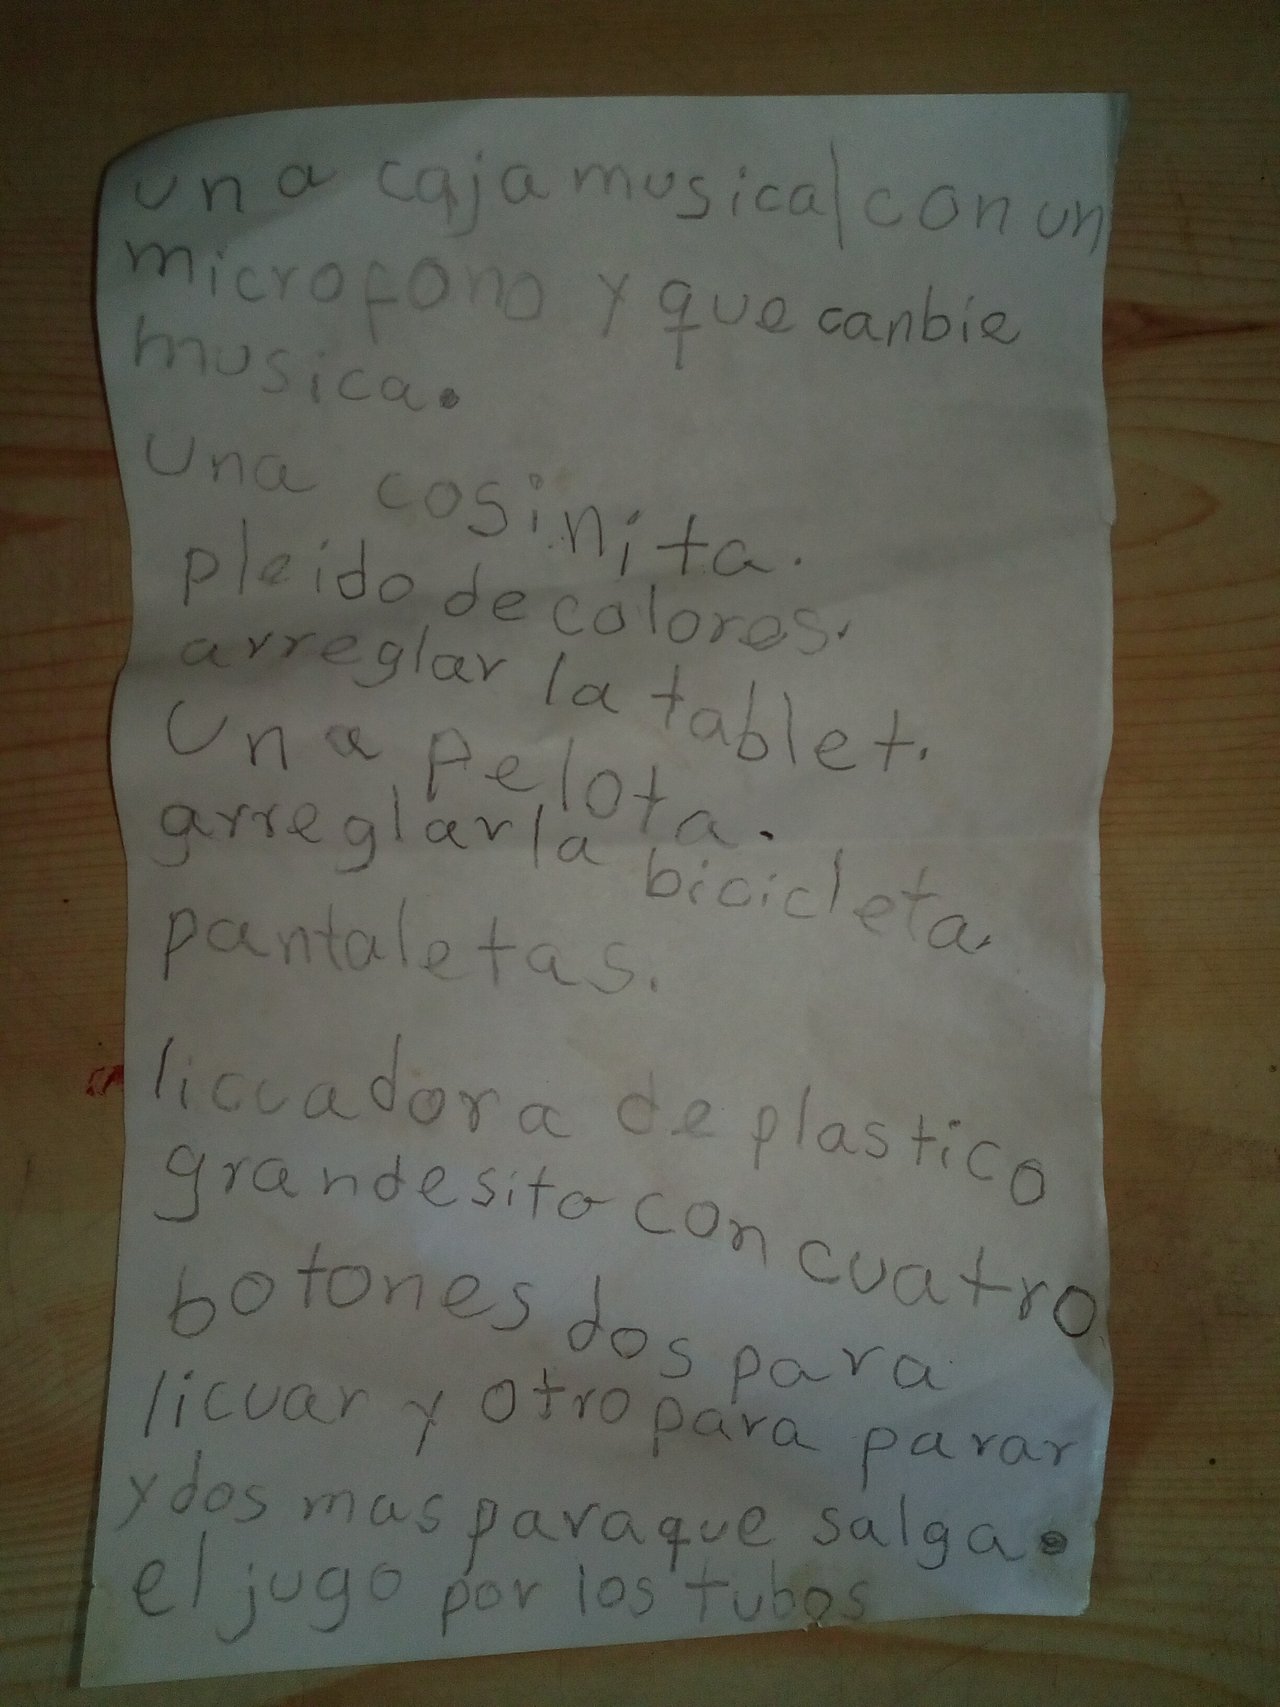 una caja musical con un
microfono y que canbie
musica.
Una cosinita.
pleido de colores.
arreglar la tablet.
Una pelota.
arreglar la bicicleta.
pantaletas.
licuadora de plastico
grandesito con cuatro
botones dos para
licuar y otro para parar
y dos mas para que salga.
el jugo por los tubos